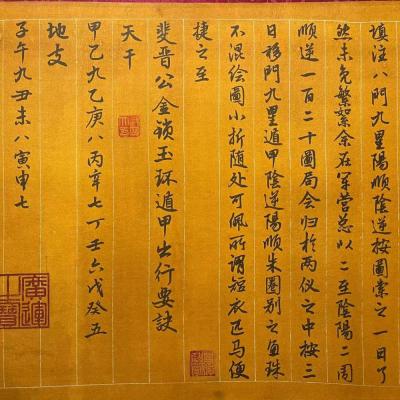 填注八門九星陽順陰逆按圖索之一目了
然未免繁絮余在軍营总以二至陰陽二周
順逆一百二十圖局会归於两仪之中按三
日移門九星遁甲陰逆陽順朱圈别之鱼珠
不混绘圖小折随处可佩所谓短衣匹马便
捷之至
斐晋公金锁玉环遁甲出行要訣
天干
甲乙九乙庚八丙辛七丁壬六戊癸五
地支
子午九丑未八寅申七
廣運
之寶